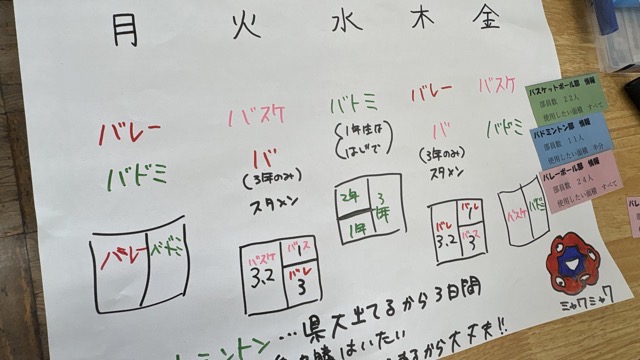 月 火 水 木 金
バレー
バドミ
バスケ
バ
(3年のみ)
スタメン
バドミ
(1年生は
はじで)
バレー
バ
(3年のみ)
スタメン
バスケ
バドミ
バレー バドミ
バスケ
3.2
バス
1
バレ
3
2年
1年
3年
バレ
3.2
バレ
1
バス
3
バスケ バドミ
バスケットボール部 情報
部員数 22人
使用したい面積 すべて
バドミントン部 情報
部員数 11人
使用したい面積 半分
バレーボール部 情報
部員数 24人
使用したい面積 すべて
ミャクミャク
ミントン…県大出てるから3日間
勝はいたい
あるから大丈夫!!